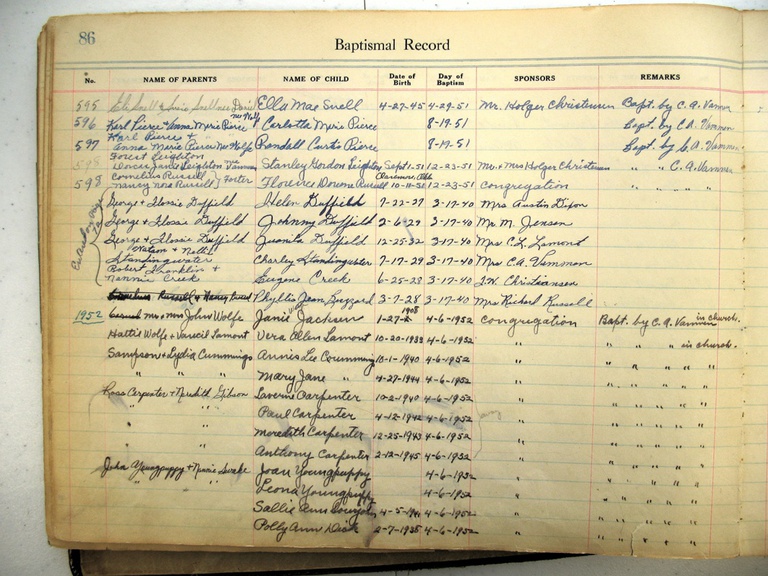 86
Baptismal Record
No. NAME OF PARENTS NAME OF CHILD Date of Birth Day of Baptism SPONSORS REMARKS
595 Ella Mae Snell 4-27-45 4-29-51 Mr. Holger Christensen Bapt. by C.A. Vammen
596 Karl Pierce & Anna Marie Pierce nee Wolfe Carlotta Marie Pierce 8-19-51 Bapt. by C.A. Vammen
597 Karl Pierce + Anna Marie Pierce nee Wolfe Randall Curtis Pierce 8-19-51 Bapt. by C.A. Vammen
Forest Leighton
598 Leighton Stanley Gordon Leighton Sept 1.51 12-23-51 Mr. + Mrs Holger Christensen " " C.A. Vammen
Cornelius Russell Claremore, Okla
598 Nancy Nora Russell } Foster Florence Russell 10-11-51 12-23-51 congregation
George + Flossie Duffield Helen Duffield 7-22-27 3-17-40 Mrs Austin Dixon
George + Flossie Duffield Johnny Duffield 2-6-29 3-17-40 Mr. M. Jensen
George + Flossie Duffield Juanita Duffield 12-25-32 3-17-40 Mrs C.L. Lamont
Watson + Nettie
Standingwater Charley Standingwater 7-17-29 3-17-40 Mrs C.A. Vammen
Robert Franklin +
Nannie Creek Eugene Creek 6-25-28 3-17-40 Christiansen
Russell + Nancy Phyllis Jean Buzzard 3-7-28 3-17-40 Mrs Richard Russell
1952 Mr + Mrs John Wolfe Janie Jackson 1-27- 1908 4-6-1952 congregation Bapt. by C.A. Vammen in church.
Hattie Wolfe + Lamont Vera Ellen Lamont 10-20-1938 4-6-1952 " " " " in church.
Sampson + Lydia Cummings Annie Lee Cummings 4-6-1952 " " " " " "
" " " " Mary Jane " 4-27-1944 4-6-1952 " " " " " "
Ross Carpenter + Meredith Gibson Laverne Carpenter 10-2-1940 4-6-1952 " " " " " "
" " " Paul Carpenter 4-12-1942 4-6-1952 " " " " " "
" Meredith Carpenter 12-25-1943 4-6-1952 " " " " " "
" Anthony Carpenter 2-12-1945 4-6-1952 " " " " " "
John Youngpuppy + Joan Youngpuppy 4-6-1952 " " " " " "
" " " Leona Youngpuppy 4-6-1952 " " " " " "
Sallie Ann 4-6-1952 " " " " " "
Polly Ann Dick 2-7-1935 4-6-1952 " " " + "